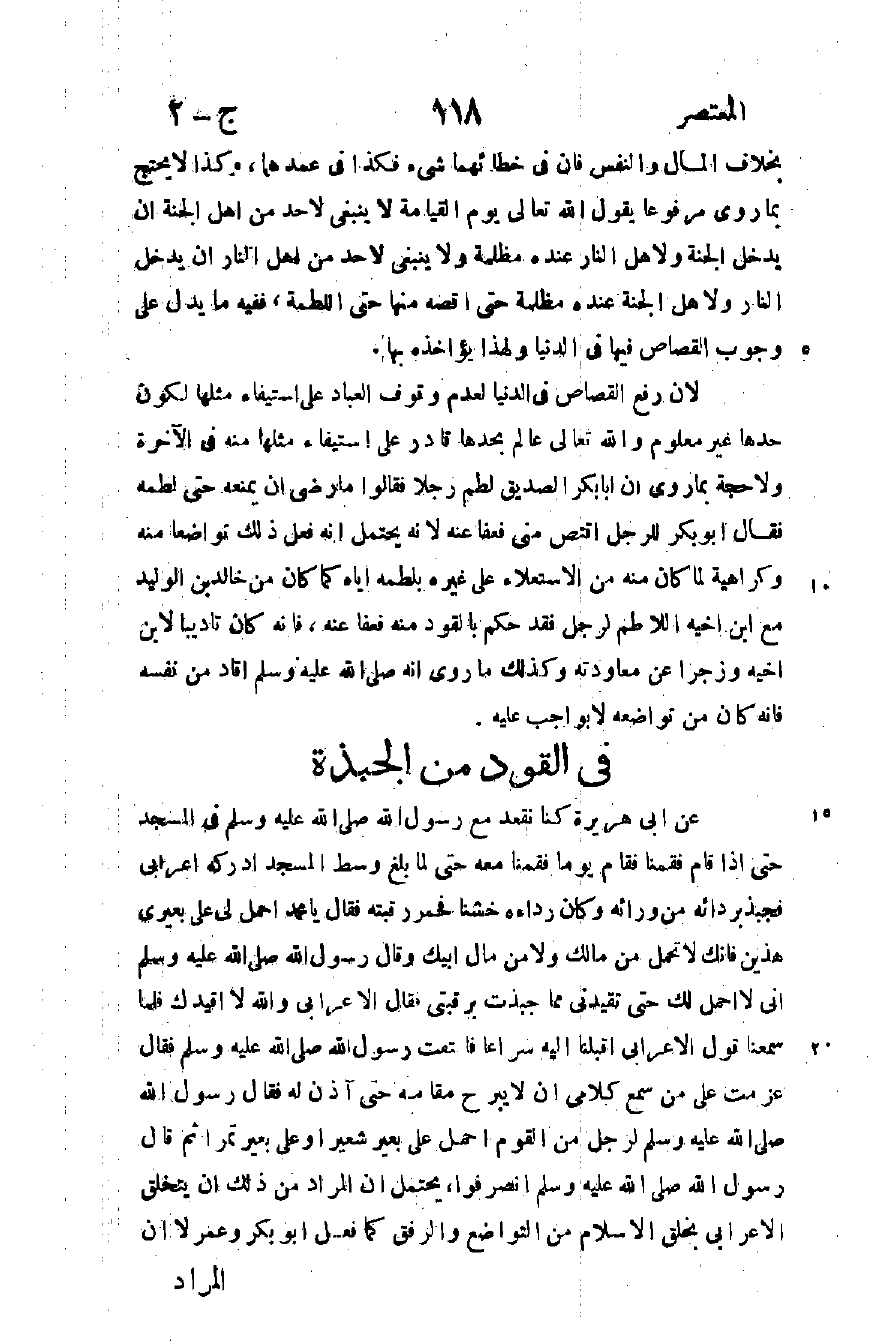 المعتصر ١١٨ ج - ٢
بخلاف المال والنفس فان فى خطائهما شيء فكذا فى عمدهما، وكذا لا يحتج
بما روى مرفوعا يقول الله تعالى يوم القيامة لا ينبغى لاحد من اهل الجنة ان
يدخل الجنة ولاهل النار عنده مظلمة ولا ينبغى لاحد من اهل النار ان يدخل
النار ولاهل الجنة عنده مظلمة حتى اقصه منها حتى اللطمة، ففيه ما يدل على
٥ وجوب القصاص فيها فى الدنيا ولهذا يؤاخذه بها.
لان رفع القصاص فى الدنيا لعدم وقوف العباد على استيفاء مثلها لكون
حدها غير معلوم والله تعالى عالم بحدها قادر على استيفاء مثلها منه فى الآخرة
ولا حجة بما روى ان ابابكر الصديق لطم رجلا فقالوا ما رضى ان يمنعه حتى لطمه
فقال ابو بكر للرجل اقتص منى فعفا عنه لانه يحتمل انه فعل ذلك تواضعا منه
١٠ وكراهية لما كان منه من الاستعلاء على غيره بلطمه اياه كما كان من خالد بن الوليد
مع ابن اخيه اللاطم لرجل فقد حكم بالقود منه فعفا عنه، فانه كان تاديبا لابن
اخيه وزجرا عن معاودته وكذلك ما روى انه صلى الله عليه وسلم اقاد من نفسه
فانه كان من تواضعه لا بواجب عليه.
فى القود من الجبذة
١٥ عن ابى هريرة كنا نقعد مع رسول الله صلى الله عليه وسلم فى المسجد
حتى اذا قام فقمنا فقام يوما فقمنا معه حتى لما بلغ وسط المسجد ادركه اعرابى
فجبذ بردائه من ورائه وكان رداءه خشنا فحمر رقبته فقال يا محمد احمل لى على بعيرى
هذين فانك لا تحمل من مالك ولا من مال ابيك وقال رسول الله صلى الله عليه وسلم
انى لا احمل لك حتى تقيدنى مما جبذت برقبتى فقال الاعرابى والله لا اقيدك فلما
٢٠ سمعنا قول الاعرابى اقبلنا اليه سراعا فالتفت رسول الله صلى الله عليه وسلم فقال
عزمت على من سمع كلامى ان لا يبرح مقامه حتى آذن له فقال رسول الله
صلى الله عليه وسلم لرجل من القوم احمل على بعير شعيرا وعلى بعير تمرا ثم قال
رسول الله صلى الله عليه وسلم انصرفوا، يحتمل ان المراد من ذلك ان يتخلق
الاعرابى بخلق الاسلام من التواضع والرفق كما فعل ابو بكر وعمر لا ان
المراد